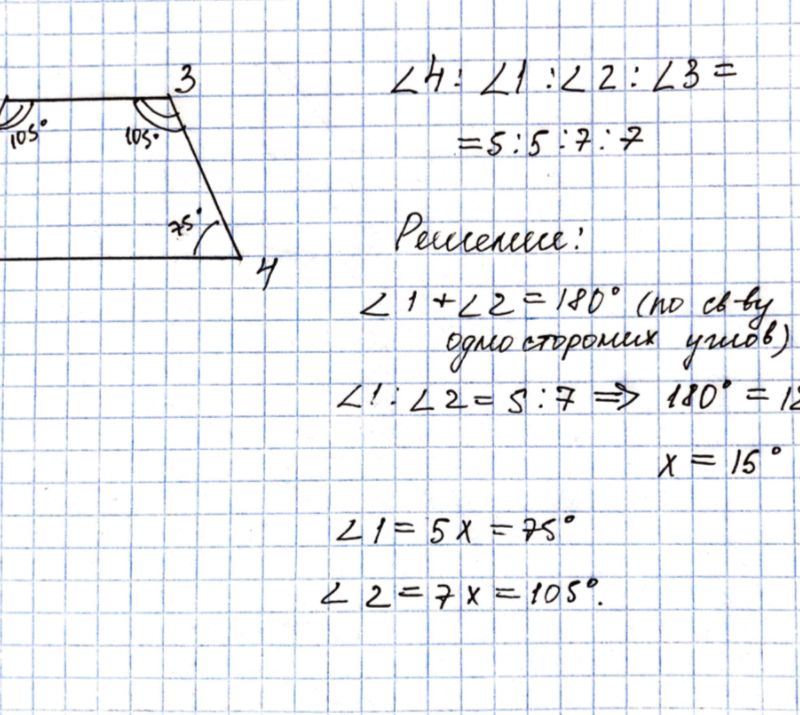 3
105°
105°
75°
4
∠4: ∠1 :∠2 : ∠3 =
=5:5:7:7
Решение:
∠1+∠2=180° (по св-ву
односторонних углов)
∠1:∠2=5:7 => 180° = 12
x = 15°
∠1= 5x =75°
∠2=7x=105°.